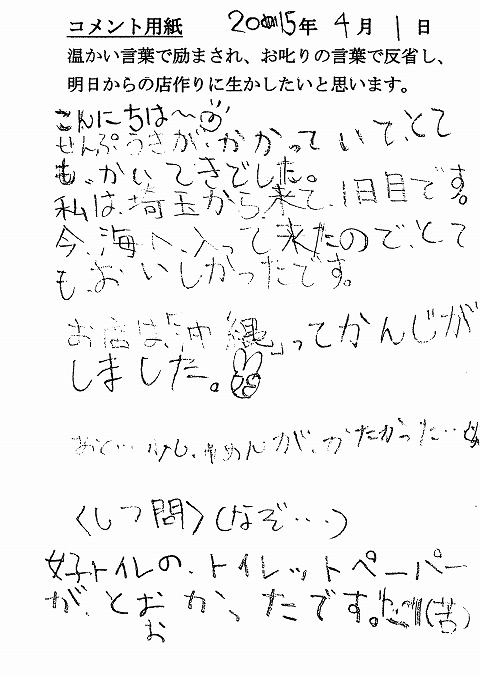 コメント用紙 2015年 4月 1日
温かい言葉で励まされ、お叱りの言葉で反省し、
明日からの店作りに生かしたいと思います。
こんにちは〜
せんぷうきが、かかっていて、とて
も、かいてきでした。
私は、埼玉から、来て、1日目です。
今、海へ、入って来たので、とて
も、おいしかったです。
お店は「沖縄」ってかんじが
しました。
あと…少し、めんが、かたかった…
〈しつ問〉(なぞ…)
女子トイレの、トイレットペーパー
が、とおおかったです。(苦)
お